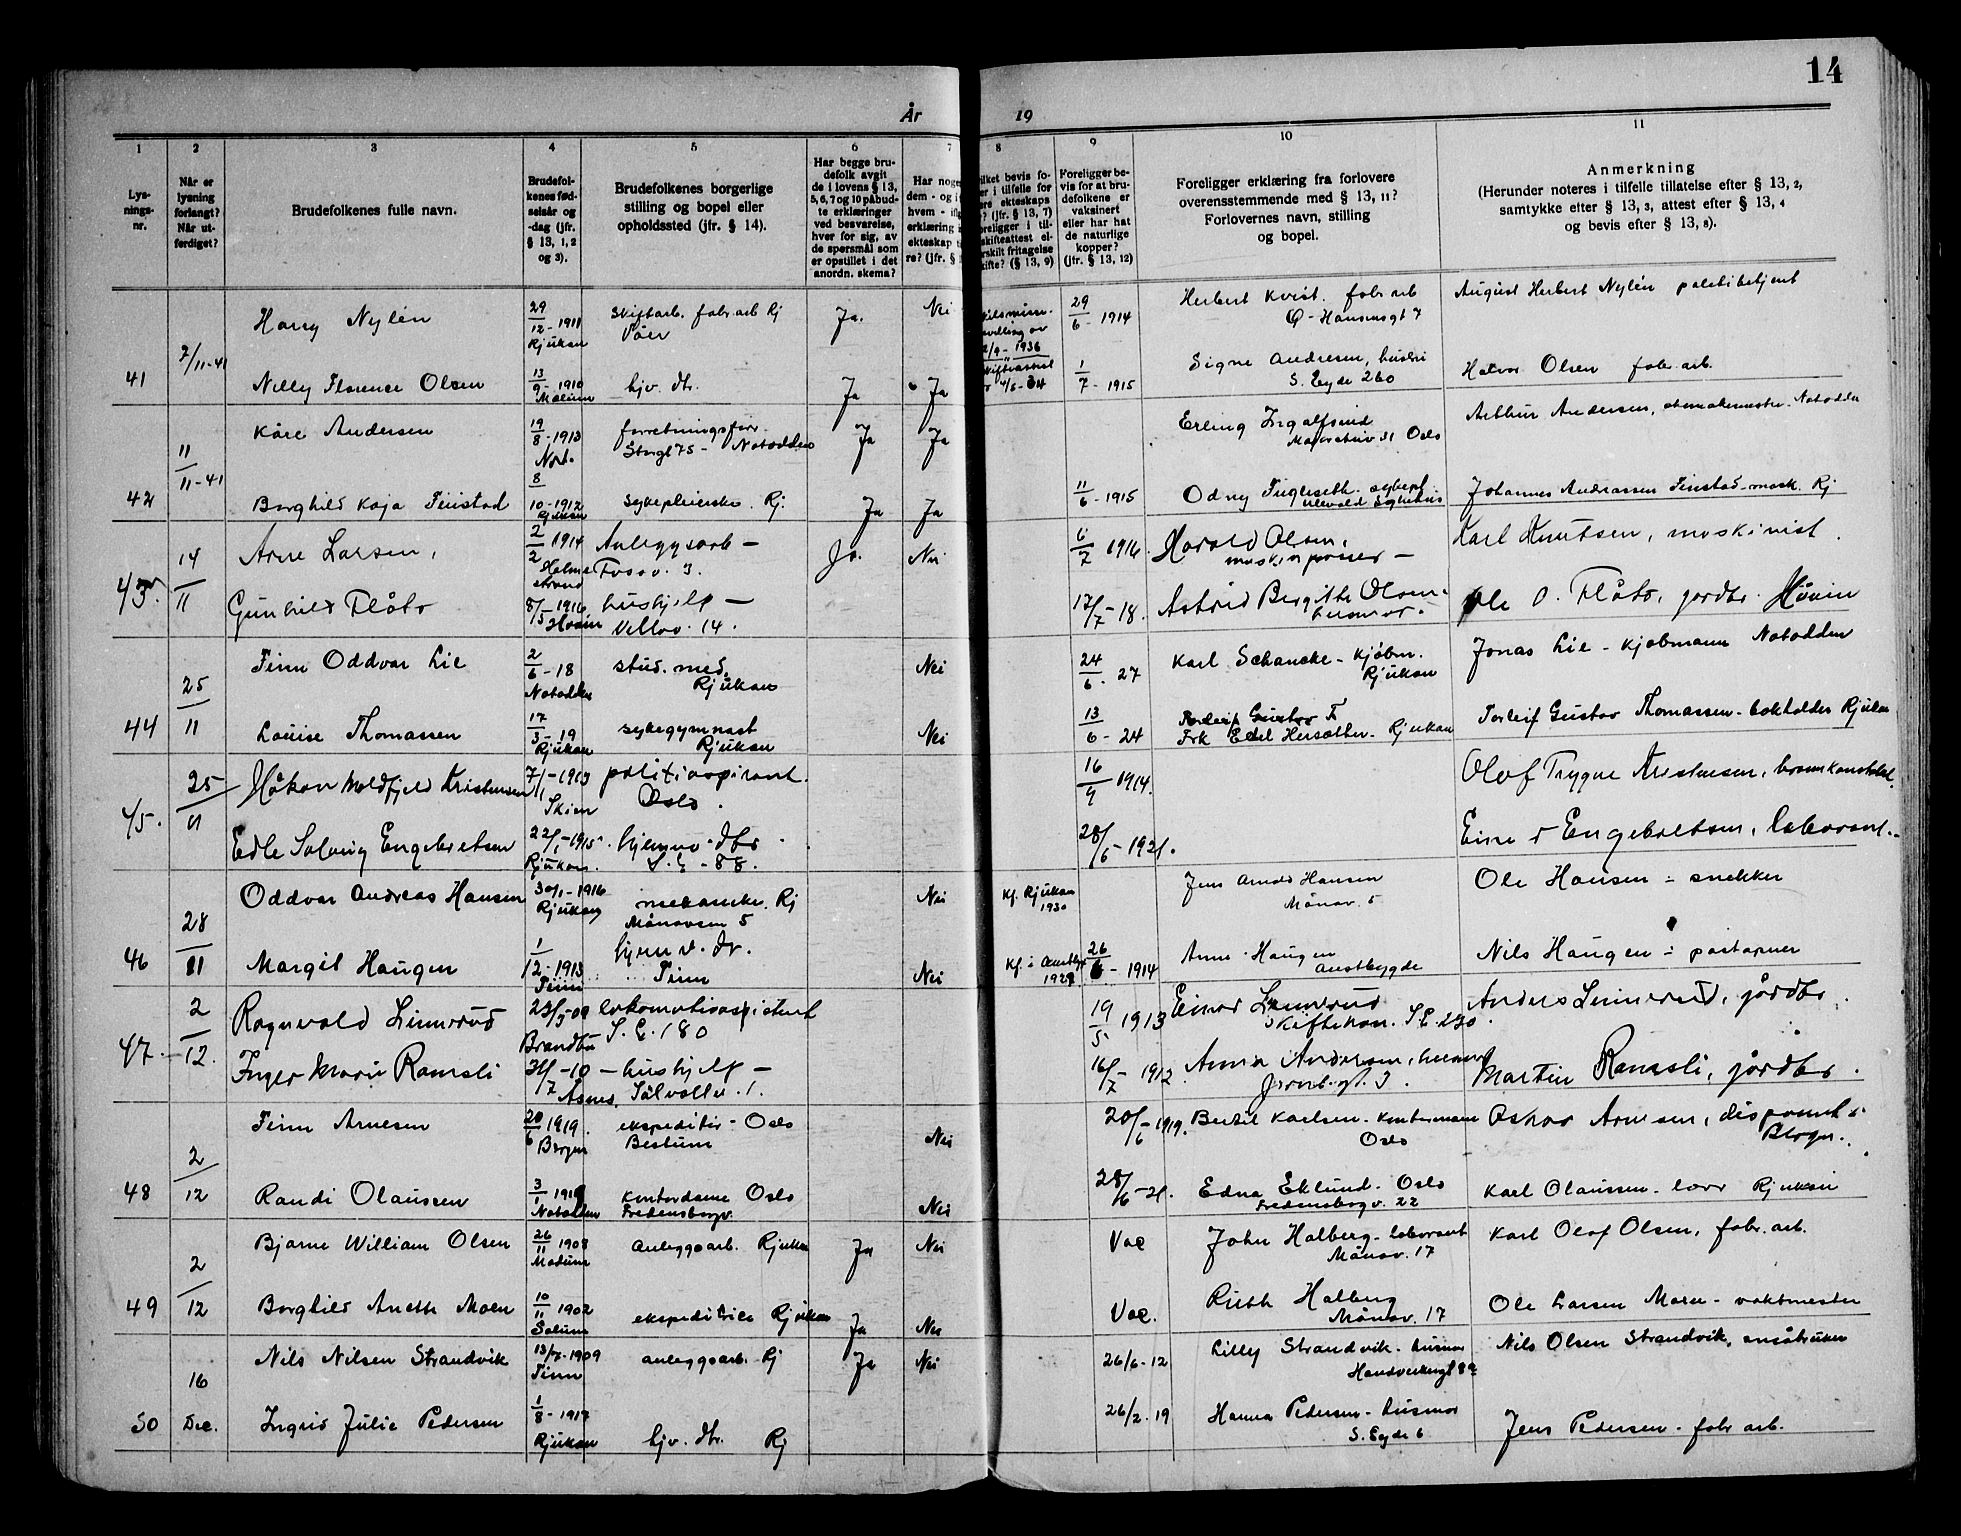 14
År 19
1 2 3 4 5 6 7 8 9 10 11
Lys-
nings-
nr.
Når er
lysning
forlangt?
Når ut-
ferdiget?
Brudefolkenes fulle navn.
Brudefol-
kenes fød-
selsår og
-dag (jfr.
§ 13, 1, 2
og 3).
Brudefolkenes borgerlige
stilling og bopel eller
opholdssted (jfr. § 14).
Har begge bru-
defolk avgit
de i lovens § 13,
5, 6, 7 og 10 påbud-
te erklæringer
ved besvarelse,
hver for sig, av
de spørsmål som
er opstillet i det
anordn. skema?
Har noge
dem - og i
hvem - ifl
erklæring
ekteskap t
re? (jfr. §
ilket bevis fo-
er i tilfelle for
ere ekteskaps
? (jfr. § 13, 7)
oreligger i til-
skifteattest el-
rskilt fritagelse
kifte? (§ 13, 9)
Foreligger be-
vis for at bru-
defolkene er
vaksinert
eller har hat
de naturlige
kopper?
(jfr. § 13, 12)
Foreligger erklæring fra forlovere
overensstemmende med § 13, 11?
Forlovernes navn, stilling
og bopel.
Anmerkning
(Herunder noteres i tilfelle tillatelse efter § 13, 2,
samtykke efter § 13, 3, attest efter § 13, 4
og bevis efter § 13, 8).
41 7/11-41
Harry Nylén 29/12-1911 Rjukan Skiftarb. fabr.arb Rj Ja. Nei 29/6-1914 Herbert Kvist. fabr arb August Herbert Nylén politibetjent
Nelly Florence Olsen 13/9-1910 hjv. dtr. Ja Ja 4/5-34 1/7-1915 Signe Andresen, S. Eyde 260 Halvor Olsen fabr. arb.
42 11/11-41
Kåre Andersen 19/8-1913 Not. forretningsfør. Storgt 75 - Notodden Ja Ja Erling Oslo Arthur Andersen, Notodden
Borghild Kaja Finstad 8/10-1912 Rjukan sykepleierske. Rj. Ja Ja 11/6-1915 Odny Fugleseth. sykepl. Ullevål Johannes Andreassen Finstad - mask. Rj
43. 14/11
Arne Larsen, 2/2 1914 Holmestrand Anleggsarb - Fossv. 3. Ja. Nei 6/7 1916. Harald Olsen, maskinpasser - Karl Knutsen, maskinist.
Gunhild Flåto 8/5-1916 Hovin hushjelp - Villav. 14. 17/7-18. Astrid Bergithe Olsen. husmor. Ole O. Flåto, jordbr. Hovin
44 25/11
Finn Oddvar Lie 2/6-18 Notodden stud. med. Rjukan Nei 24/6.27 Karl Schancke - kjøbm. Rjukan Jonas Lie - kjøbmann Notodden
Louise Thomassen 17/3-19 Rjukan sykegymnast Rjukan Nei 13/6-24 Torleif Gustav T Frk Edel Hersæther - Rjukan Torleif Gustav Thomassen - bokholder Rjukan
45. 25/11
Håkon Moldfjeld Kristensen 7/1-1913 Skien politiaspirant. Oslo. 16/9 1914. Olof Trygve Kristensen,
Edle Solveig Engebretsen 22/1-1915 Rjukan. hjemmev. dtr S. E - 88. 28/6-1921. Einar Engebretsen, laborant.
46 28/11
Oddvar Andreas Hansen 30/1-1916 Rjukan mekaniker. Rj Månaveien 5 Nei Kf. Rjukan 1930 Jens Arnold Hansen Månav. 5 Ole Hansen - snekker
Margit Haugen 1/12-1913 Tinn hjemv. dtr. Tinn Nei Kf. i Austbygd 26/6-1914 Anne Haugen Austbygde Nils Haugen - poståpner
47. 2/12.
Ragnvald Linnerud 23/5-09 Brandbu lokomotivaspirant S. E. 180 19/5 1913 Einar Linnerud S E. 230 Anders Linnerud, jordbr.
Inger Marie Ramsli 31/7-10 Åsnes. - hushjelp - Sålvolle. 1. 16/7-1912 Anna Andersen, husmor Jernb. gt. 3. Martin Ramsli, jordbr.
48 2/12
Finn Arnesen 20/6 1919. Bergen ekspeditør - Oslo Bestum Nei 20/6-1919. Bertil Karlsen - kontormann Oslo Oskar Arnesen, disponent
Randi Olaussen 3/1 1919 Notodden Kontordame Oslo Fredensborgv. Nei 28/6-21. Edna Eklund - Oslo Fredensborgv. 22 Karl Olaussen - Rjukan
49 2/12
Bjarne William Olsen 26/11 1908 Modum Anleggsarb. Rjukan Ja Nei Vac John Halberg - laborant Månav. 17 Karl Olof Olsen, fabr. arb.
Borghild Anette Moen 10/11 1902 Solum ekspeditrice Rjukan Ja Nei Vac. Ruth Halberg Månav. 17 Ole Larsen Moen - vaktmester
50 16 Dec.
Nils Nilsen Strandvik 13/7-1909 Tinn anleggsarb. Rj Ja Nei 26/6-12 Lilly Strandvik - husmor Nils Olsen Strandvik, småbruker
Ingrid Julie Pedersen 1/8-1917 Rjukan hjv. dtr. Rj 26/2.19 Hanna Pedersen - husmor S. Eyde 6 Jens Pedersen - fabr arb.